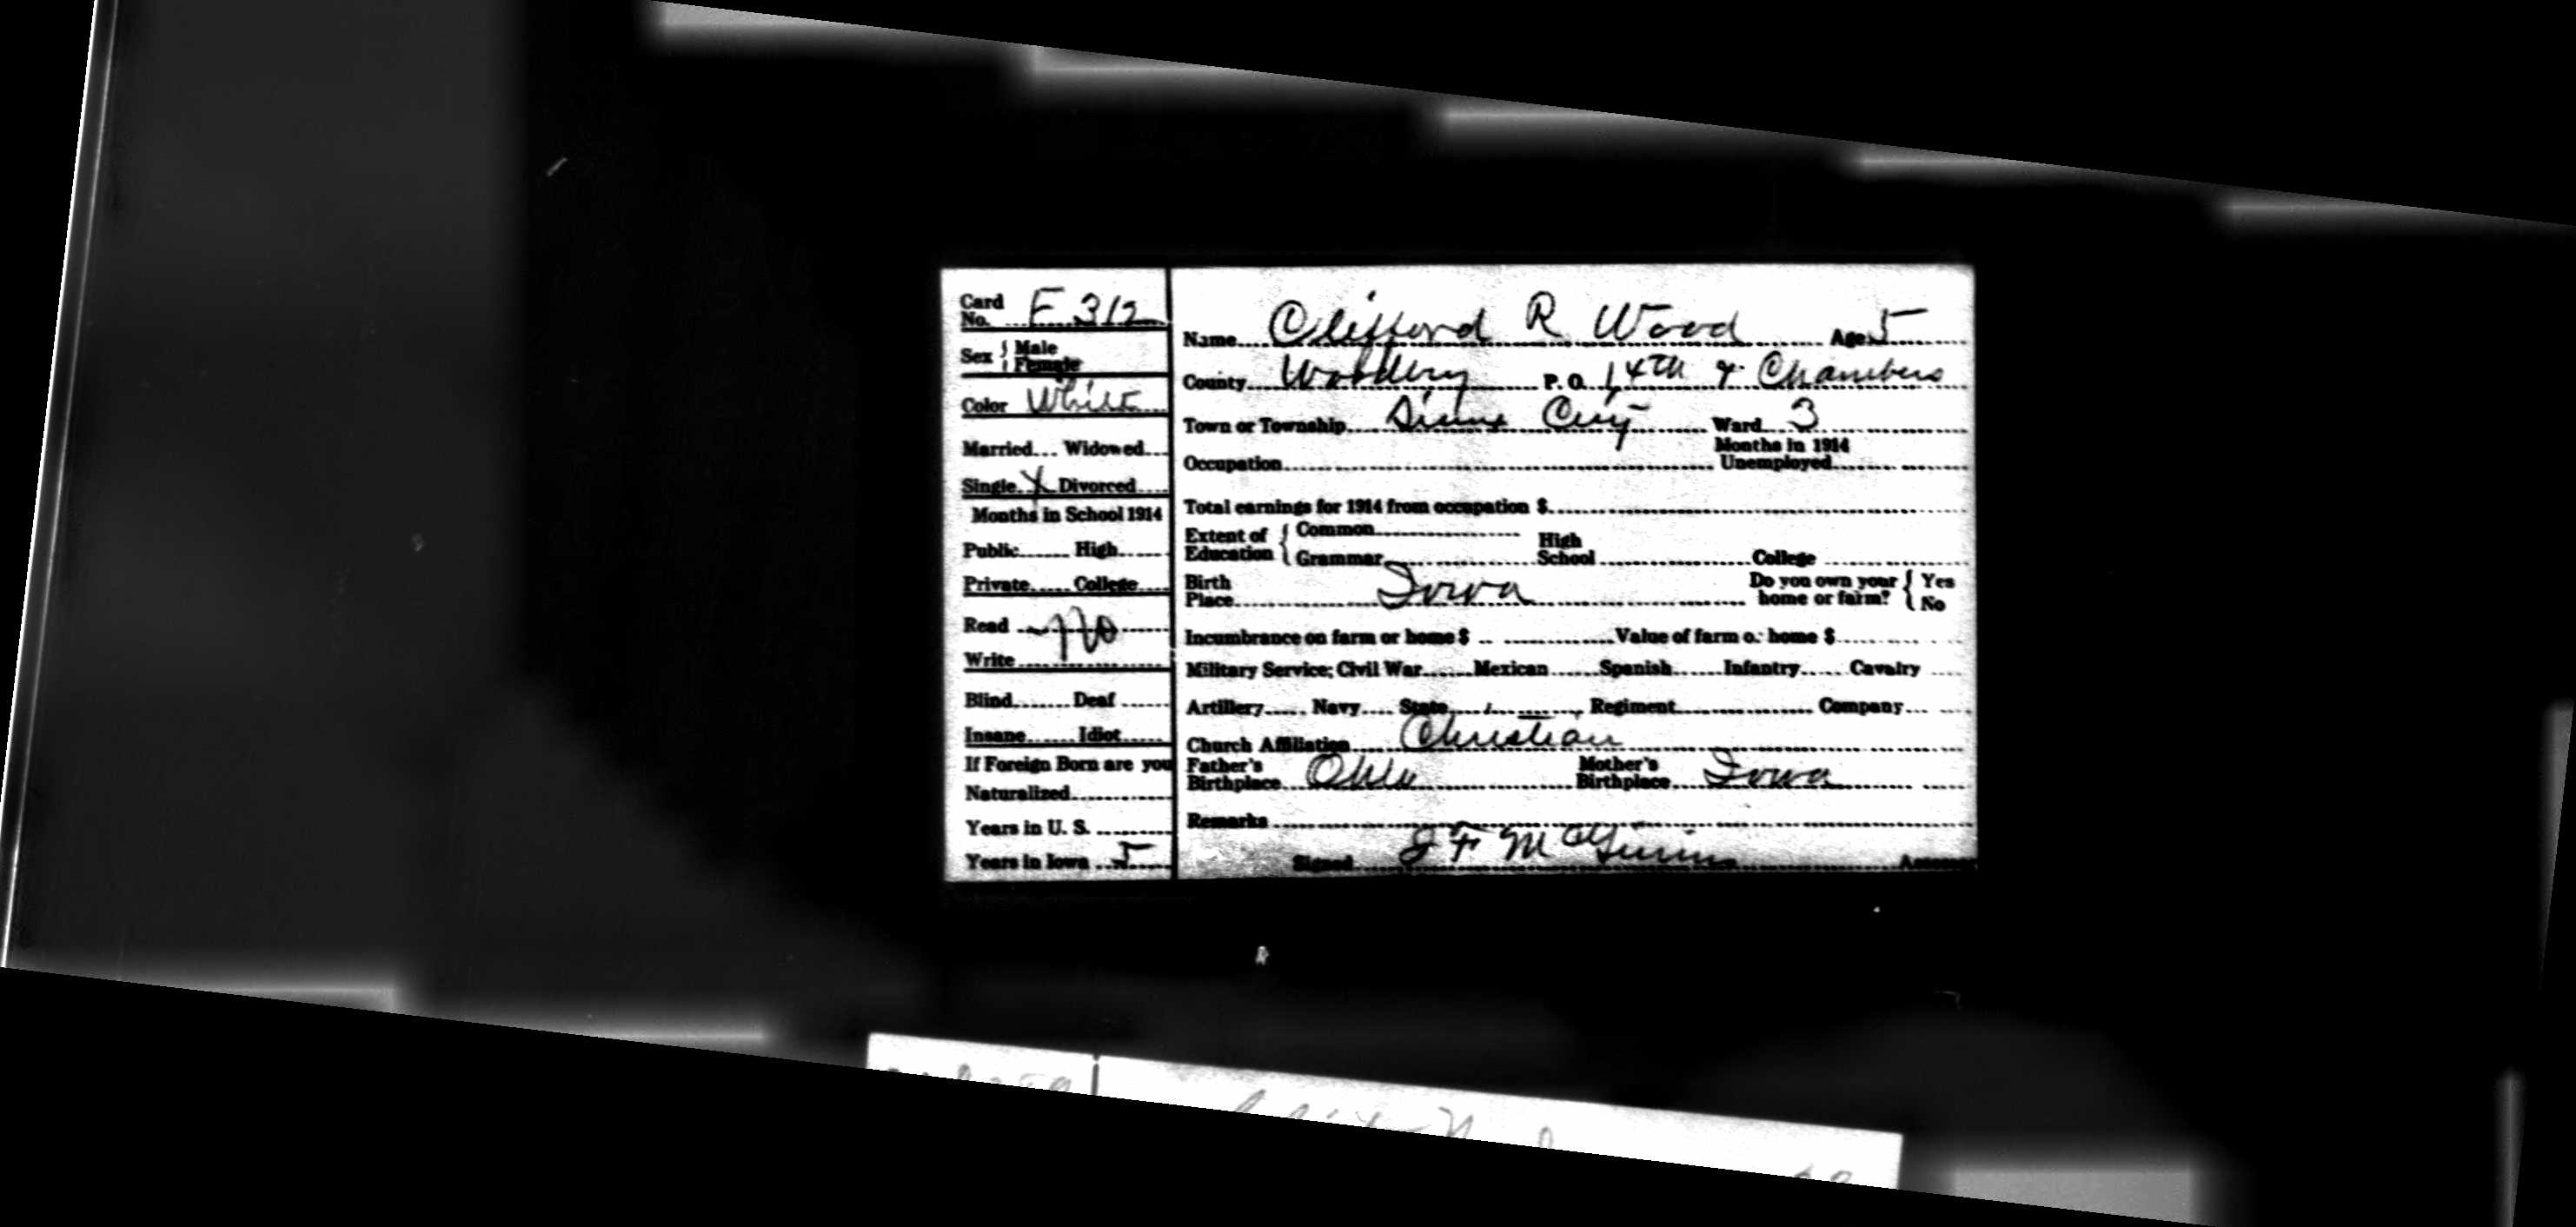 Card No. E 312
Sex { Male Female
Color White
Married Widowed
Single X Divorced
Months in School 1914
Public High
Private College
Read no
Write
Blind Deaf
Insane Idiot
If Foreign Born are you
Naturalized
Years in U. S.
Years in Iowa 5
Name Clifford R Wood Age 5
County Woodbury P. O. 14th & Chambers
Town or Township Sioux City Ward 3
Occupation Months in 1914 Unemployed
Total earnings for 1914 from occupation $
Extent of Education { Common
Grammar High School College
Birth Place Iowa Do you own your home or farm? { Yes No
Incumbrance on farm or home $ Value of farm or home $
Military Service; Civil War Mexican Spanish Infantry Cavalry
Artillery Navy State Regiment Company
Church Affiliation Christian
Father's Birthplace Ohio Mother's Birthplace Iowa
Remarks
Signed J F McGinnis